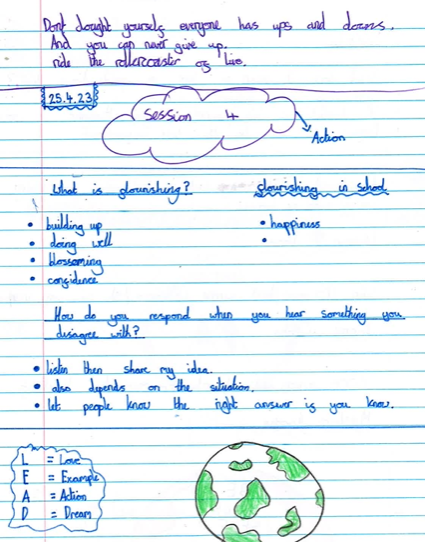 Dont dought yourself everyone has ups and downs.
And you can never give up.
ride the rollercoaster of live.
25.4.23
Session 4
Action
What is flourishing?
flourishing in school
• building up
• doing well
• blossoming
• confidence
• happiness
•
How do you respond when you hear something you
disagree with?
• listen then share my idea.
• also depends on the situation.
• let people know the right answer if you know.
L = Love
E = Example
A = Action
D = Dream